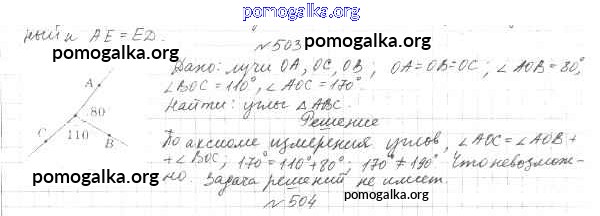 pomogalka.org
ный и AE = ED.
pomogalka.org
№ 503
pomogalka.org
Дано: лучи OA, OC, OB; OA=OB=OC; ∠AOB = 80°,
∠BOC = 110°, ∠AOC = 170°.
Найти: углы △ABC.
Решение
По аксиоме измерения углов, ∠AOC = ∠AOB +
+ ∠BOC; 170° = 110° + 80°; 170° ≠ 190°. Что невозмож-
но. Задача решений не имеет.
A
80
C
110
B
pomogalka.org
№ 504
pomogalka.org